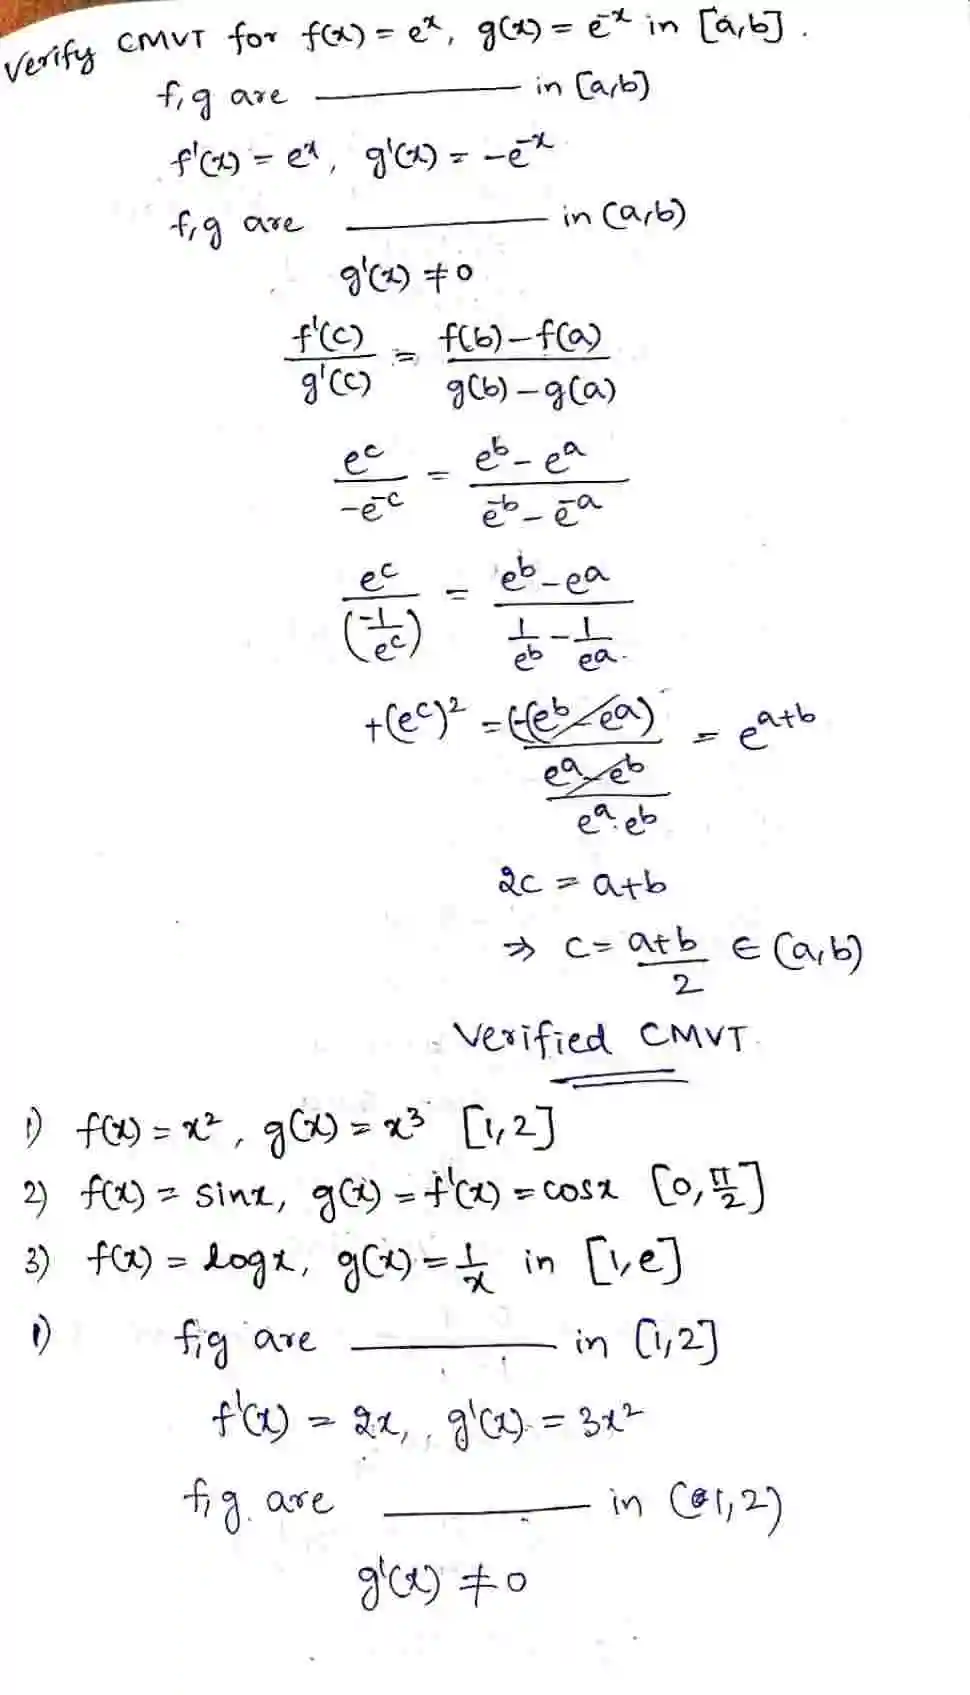 Verify CMVT for f(x) = e^x, g(x) = e^-x in [a,b].
f,g are ———— in [a,b]
f'(x) = e^x, g'(x) = -e^-x
f,g are ———— in (a,b)
g'(x) ≠ 0
f'(c)/g'(c) = (f(b)-f(a))/(g(b)-g(a))
e^c/-e^-c = (e^b - e^a)/(e^-b - e^-a)
e^c/(-1/e^c) = (e^b - e^a)/(1/e^b - 1/e^a)
+(e^c)^2 = (-(e^b - e^a))/((e^a - e^b)/(e^a.e^b)) = e^a+b
2c = a+b
⇒ c = (a+b)/2 ∈ (a,b)
Verified CMVT.
1) f(x) = x^2, g(x) = x^3 [1,2]
2) f(x) = sinx, g(x) = f'(x) = cosx [0, π/2]
3) f(x) = logx, g(x) = 1/x in [1,e]
1) f,g are ———— in [1,2]
f'(x) = 2x, g'(x) = 3x^2
f,g are ———— in (1,2)
g'(x) ≠ 0